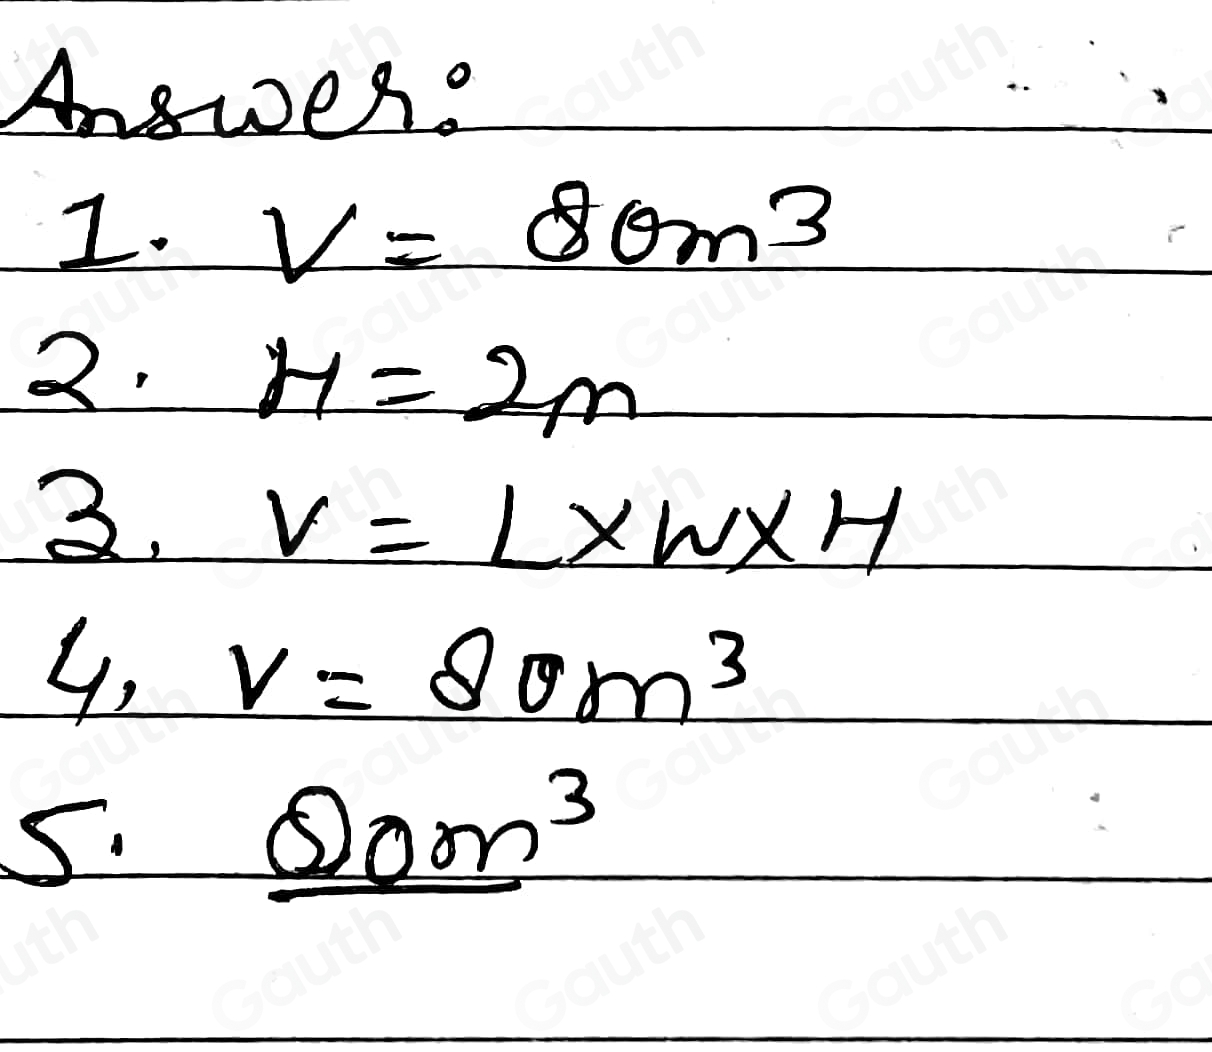 Answer:
1. V = 80m³
2. H = 2m
3. V = L X W X H
4, V = 80m³
5. 80m³